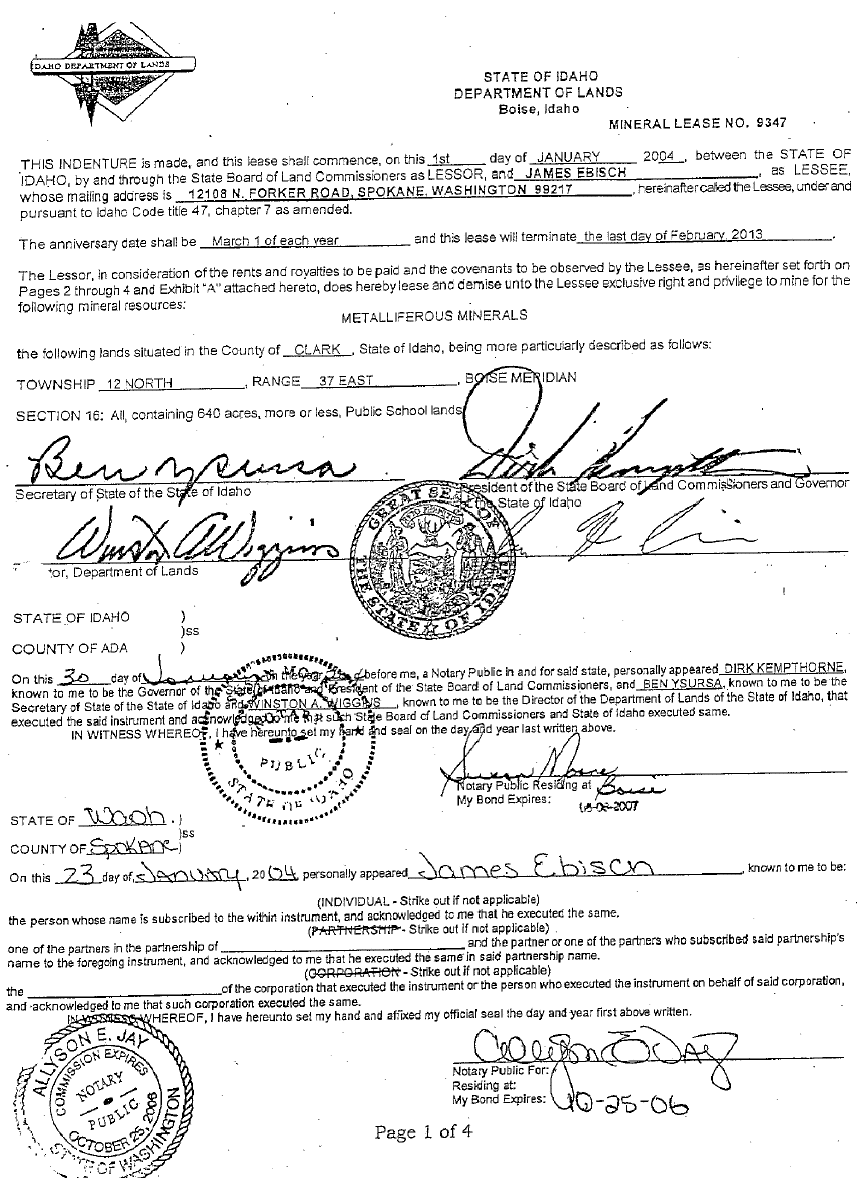 IDAHO DEPARTMENT OF LANDS
STATE OF IDAHO
DEPARTMENT OF LANDS
Boise, Idaho
MINERAL LEASE NO. 9347
THIS INDENTURE is made, and this lease shall commence, on this 1st day of JANUARY 2004, between the STATE OF
IDAHO, by and through the State Board of Land Commissioners as LESSOR, and JAMES EBISCH, as LESSEE,
whose mailing address is 12108 N. FORKER ROAD, SPOKANE, WASHINGTON 99217, hereinafter called the Lessee, under and
pursuant to Idaho Code title 47, chapter 7 as amended.
The anniversary date shall be March 1 of each year and this lease will terminate the last day of February, 2013.
The Lessor, in consideration of the rents and royalties to be paid and the covenants to be observed by the Lessee, as hereinafter set forth on
Pages 2 through 4 and Exhibit "A" attached hereto, does hereby lease and demise unto the Lessee exclusive right and privilege to mine for the
following mineral resources:
METALLIFEROUS MINERALS
the following lands situated in the County of CLARK, State of Idaho, being more particularly described as follows:
TOWNSHIP 12 NORTH, RANGE 37 EAST, BOISE MERIDIAN
SECTION 16: All, containing 640 acres, more or less, Public School lands
Ben Ysursa Dirk Kempthorne
Secretary of State of the State of Idaho President of the State Board of Land Commissioners and Governor
State of Idaho
GREAT SEAL OF THE STATE OF IDAHO
Winston A Wiggins
tor, Department of Lands
STATE OF IDAHO )
)ss
COUNTY OF ADA )
On this 30 day of January in the year before me, a Notary Public in and for said state, personally appeared DIRK KEMPTHORNE,
known to me to be the Governor of the State of Idaho and President of the State Board of Land Commissioners, and BEN YSURSA, known to me to be the
Secretary of State of the State of Idaho and WINSTON A. WIGGINS, known to me to be the Director of the Department of Lands of the State of Idaho, that
executed the said instrument and acknowledged to me that such State Board of Land Commissioners and State of Idaho executed same.
IN WITNESS WHEREOF, I have hereunto set my hand and seal on the day and year last written above.
PUBLIC
STATE OF IDAHO
Susan Moore
Notary Public Residing at Boise
My Bond Expires: 2007
STATE OF Wash. )
)ss
COUNTY OF Spokane)
On this 23 day of January, 2004 personally appeared James Ebisch, known to me to be:
(INDIVIDUAL - Strike out if not applicable)
the person whose name is subscribed to the within instrument, and acknowledged to me that he executed the same.
(PARTNERSHIP - Strike out if not applicable)
one of the partners in the partnership of and the partner or one of the partners who subscribed said partnership's
name to the foregoing instrument, and acknowledged to me that he executed the same in said partnership name.
(CORPORATION - Strike out if not applicable)
the of the corporation that executed the instrument or the person who executed the instrument on behalf of said corporation,
and acknowledged to me that such corporation executed the same.
IN WITNESS WHEREOF, I have hereunto set my hand and affixed my official seal the day and year first above written.
ALLYSON E. JAY
COMMISSION EXPIRES
NOTARY
PUBLIC
OCTOBER 25, 2006
STATE OF WASHINGTON
Allyson E Jay
Notary Public For:
Residing at:
My Bond Expires: 10-25-06
Page 1 of 4